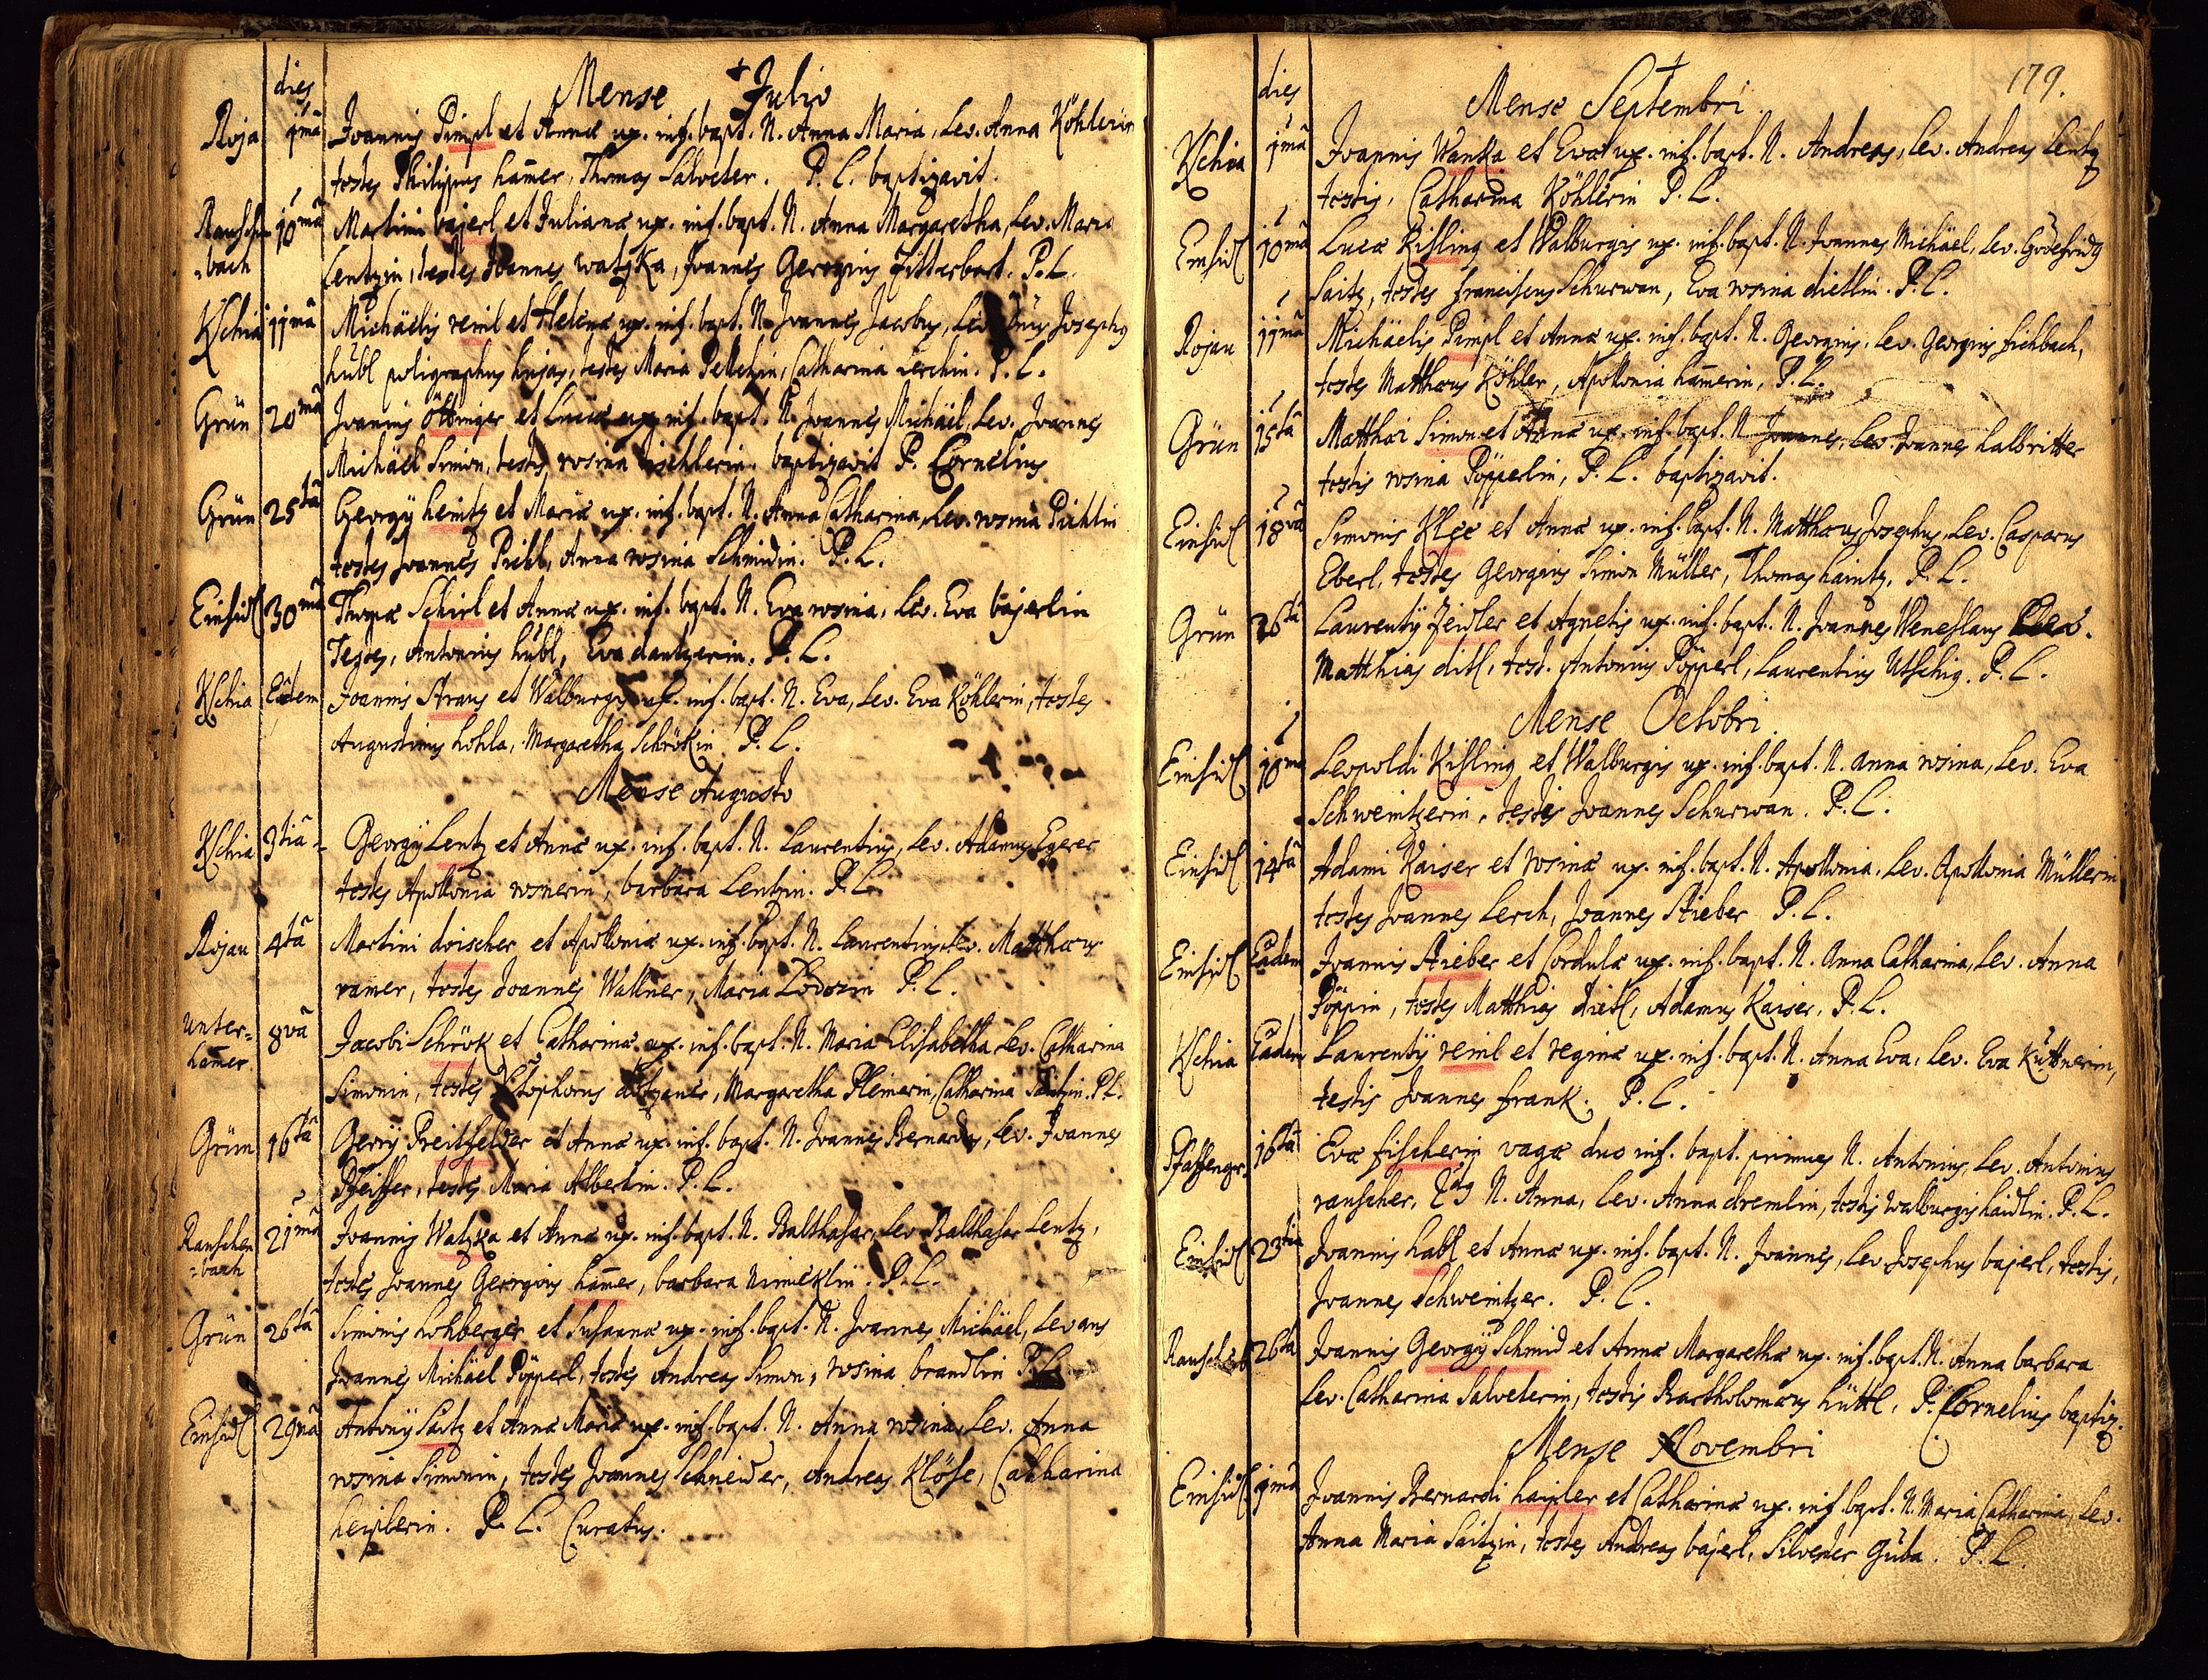 dies
Mense Julio
Roja 1mâ Joannis Pimpl et Annæ ux. inf. bapt. N. Anna Maria, Lev. Anna Köhlerin
testes Philippus hamer, Thomas Salveter. P. L. baptizavit.
Rauschen 10mâ Martini bajerl et Julianæ ux. inf. bapt. N. Anna Margaretha, Lev. Maria
=bach Lentzin, testes Joannes watzka, Joannes Georgius Fitterbart. P. L.
Kschia 11mâ Michäelis reinl et Helenæ ux. inf. bapt. N. Joannes Jacobus, Lev. Josephus
hübl poligraphus hujas, testes Maria Peltchin, Catharina Lerchin. P. L.
Grün 20mâ Joannis öttinger et Luciæ ux. inf. bapt. N. Joannes Michäel, Lev. Joannes
Michäel Simon, testis rosina tischlerin. baptizavit P. Cornelius
Grün 25tâ Georgÿ heintz et Mariæ ux. inf. bapt. N. Anna Catharina, Lev. rosina Pichlin
testes Joannes Pichl, Anna rosina Schmidin. P. L.
Einsidl 30mâ Thomæ Schirl et Annæ ux. inf. bapt. N. Eva rosina, Lev. Eva bajerlin
Testes, Antonius hübl, Eva dantzerin. P. L.
Kschia Eâdem Joannis Straus et Walburgis ux. inf. bapt. N. Eva, Lev. Eva Köhlerin, testes
Augustinus hohla, Margaretha Schrökin P. L.
Mense Augusto
Kschia 3tiâ Georgÿ Lentz et Annæ ux. inf. bapt. N. Laurentius, Lev. Adamus Egerer
testes Apollonia rosnerin, barbara Lentzin. P. L.
Rojau 4tâ Martini doischer et Apolloniæ ux. inf. bapt. N. Laurentius, Lev. Matthæus
ramer, testes Joannes Wallner, Maria Lodorin P. L.
unter= 8vâ Jacobi Schrök et Catharinæ ux. inf. bapt. N. Maria Elisabetha Lev. Catharina
hamer Simonin, testes Xtophorus, Margaretha Pleinerin, Catharina Saitzin. P. L.
Grün 16tâ Georgÿ Preitfelder et Annæ ux. inf. bapt. N. Joannes Bernardus, Lev. Joannes
Pfeiffer, testis Maria Albertin. P. L.
Rauschen 21mâ Joannis Watzka et Annæ ux. inf. bapt. N. Balthasar, Lev. Balthasar Lentz,
=bach testes Joannes Georgius hamer, barbara nimeklin. P. L.
Grün 26tâ Simonis hohberger et Susannæ ux. inf. bapt. N. Joannes Michäel, Levans
Joannes Michäel Pöpperl, testes Andreas Simon, rosina brandlin P. L.
Einsidl 29nâ Antonÿ Saitz et Annæ Mariæ ux. inf. bapt. N. Anna rosina, Lev. Anna
rosina Simonin, testes Joannes Schneider, Andreas Klöse, Catharina
heiplerin. P. L. Curatus.
179.
dies
Mense Septembri
Kschia 1mâ Joannis Wanka et Evæ ux. inf. bapt. N. Andreas, Lev. Andreas Lentz
testis, Catharina Köhlerin P. L.
Einsidl 10mâ Lucæ Kisling et Walburgis ux. inf. bapt. N. Joannes Michäel, Lev. Godefridus
Saitz, testes franciscus Schurwan, Eva rosina dietlin. P. L.
Rojau 11mâ Michäelis Pimpl et Annæ ux. inf. bapt. N. Georgius, Lev. Georgius fichbach,
testes Matthæus Köhler, Apollonia hamerin, P. L.
Grün 15tâ Matthæi Simon et Annæ ux. inf. bapt. N. Joannes, Lev. Joannes halbritter
testis rosina Pöpperlin, P. L. baptizavit.
Einsidl 18vâ Simonis Klee et Annæ ux. inf. bapt. N. Matthæus Josephus, Lev. Casparus
Eberl, testes Georgius Simon Müller, Thomas haintz. P. L.
Grün 26tâ Laurentÿ Zeidler et Agnetis ux. inf. bapt. N. Joannes Weneslaus Lev.
Matthias ditl, test. Antonius Pöpperl, Laurentius Utschig. P. L.
Mense Octobri
Einsidl 10mâ Leopoldi Kisling et Walburgis ux. inf. bapt. N. Anna rosina, Lev. Eva
Schweintzerin, testis Joannes Schurwan. P. L.
Einsidl 14tâ Adami Kaiser et rosinæ ux. inf. bapt. N. Apollonia. Lev. Apollonia Müllerin
testes Joannes Lerch, Joannes Stieber P. L.
Einsidl Eâdem Joannis Stieber et Cordulæ ux. inf. bapt. N. Anna Catharina, Lev. Anna
Pöppin, testes Matthias dietl, Adamus Kaiser, P. L.
Kschia Eâdem Laurentÿ reinl et reginæ ux. inf. bapt. N. Anna Eva, Lev. Eva Küttnerin,
testis Joannes frank. P. L.
Pfaffengr. 16tâ Eva fischerin vaga duo inf. bapt. primus N. Antonius, Lev. Antonius
rauscher, 2dus N. Anna, Lev. Anna dremlin, testis walburgis haidlin. P. L.
Einsidl 23tiâ Joannis habl et Annæ ux. inf. bapt. N. Joannes, Lev. Josephus bajerl, testis,
Joannes Schweintzer. P. L.
Rauschenb 26tâ Joannis Georgÿ Schmid et Annæ Margarethæ ux. inf. bapt. N. Anna barbara
Lev. Catharina Salveterin, testis Bartholomæus hüttl, P. Cornelius baptiz.
Mense Novembri
Einsidl 1mâ Joannis Bernardi haipler et Catharinæ ux. inf. bapt. N. Maria Catharina, Lev.
Anna Maria Saitzin, testes Andreas bajerl, Silvester Guba. P. L.